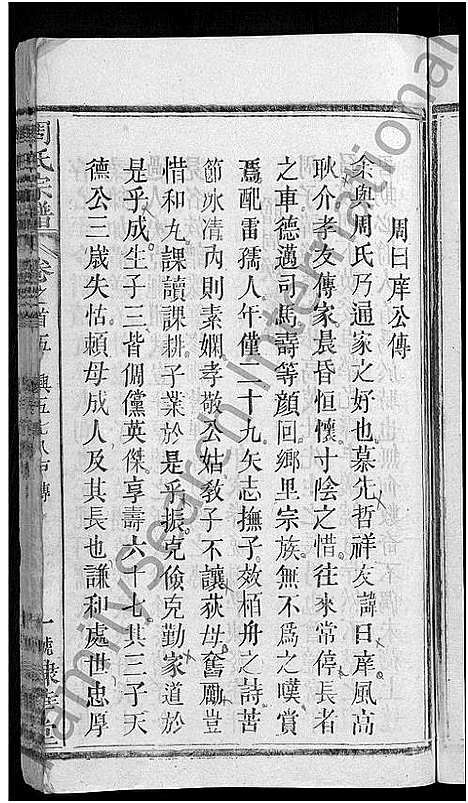 周曰庠公傳
余與周氏乃通家之好也慕先哲祥友諱曰庠風高
耿介孝友傳家晨昏恒懷寸陰之惜往來常停長者
之車德邁司馬壽等顔回鄉里宗族無不爲之嘆賞
爲配雷孺人年僅二十九矢志撫子效栢舟之詩苦
節氷清內則素嫻孝敬公姑敎子不讓荻母舊勵豈
惜和九課讀課耕子業於是乎振克儉克勤家道於
是乎成生子三皆倜儻英傑享壽六十七其三子天
德公三歲失怙頼母成人及其長也謙和處世忠厚
周氏宗譜
卷之首五
FamilySearch International